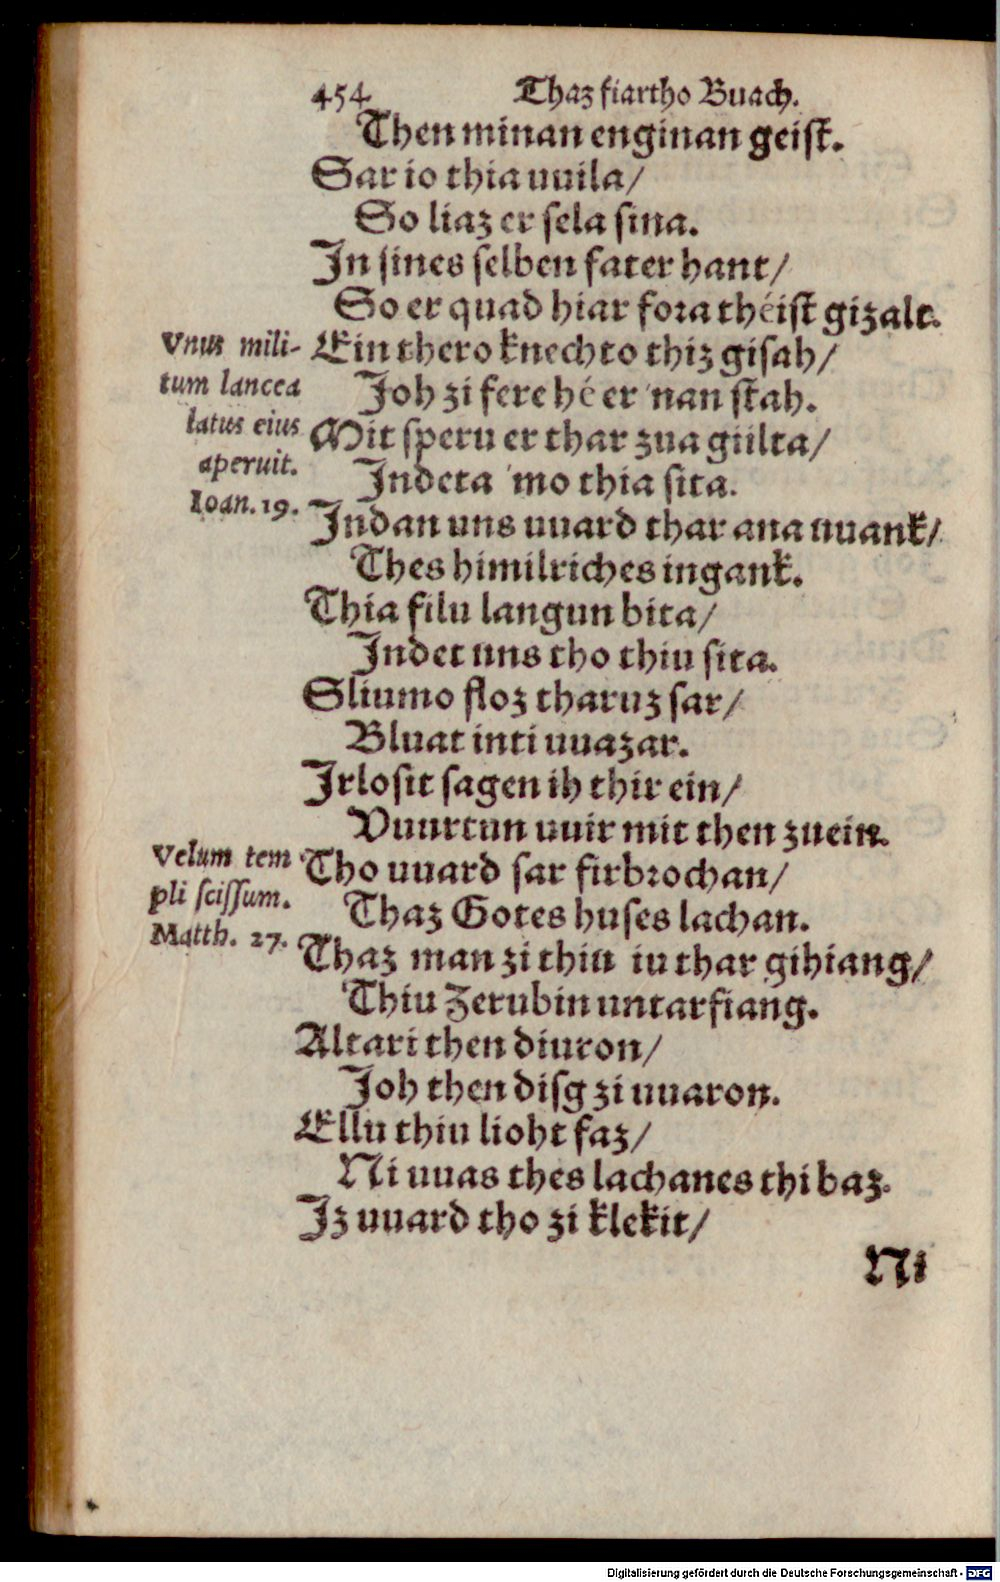 454 Thaz fiartho Buach.
Then minan enginan geist.
Sar io thia uuila/
So liaz er sela sina.
In sines selben fater hant/
So er quad hiar fora théist gizalt.
Vnus mili-
tum lancea
latus eius
aperuit.
Ioan. 19.
Ein thero knechto thiz gisah/
Joh zi fere hé er 'nan stah.
Mit speru er thar zua giilta/
Indeta 'mo thia sita.
Indan uns uuard thar ana uuank/
Thes himilriches ingank.
Thia filu langun bita/
Indet uns tho thiu sita.
Sliumo floz tharuz sar/
Bluat inti uuazar.
Irlosit sagen ih thir ein/
Vuurtun uuir mit then zuein.
Velum tem
pli scissum.
Matth. 27.
Tho uuard sar firbrochan/
Thaz Gotes huses lachan.
Thaz man zi thiu iu thar gihiang/
Thiu Zerubin untarfiang.
Altari then diuron/
Joh then disg zi uuaron.
Ellu thiu lioht faz/
Ni uuas thes lachanes thi baz.
Iz uuard tho zi klekit/
Ni
Digitalisierung gefördert durch die Deutsche Forschungsgemeinschaft - DFG